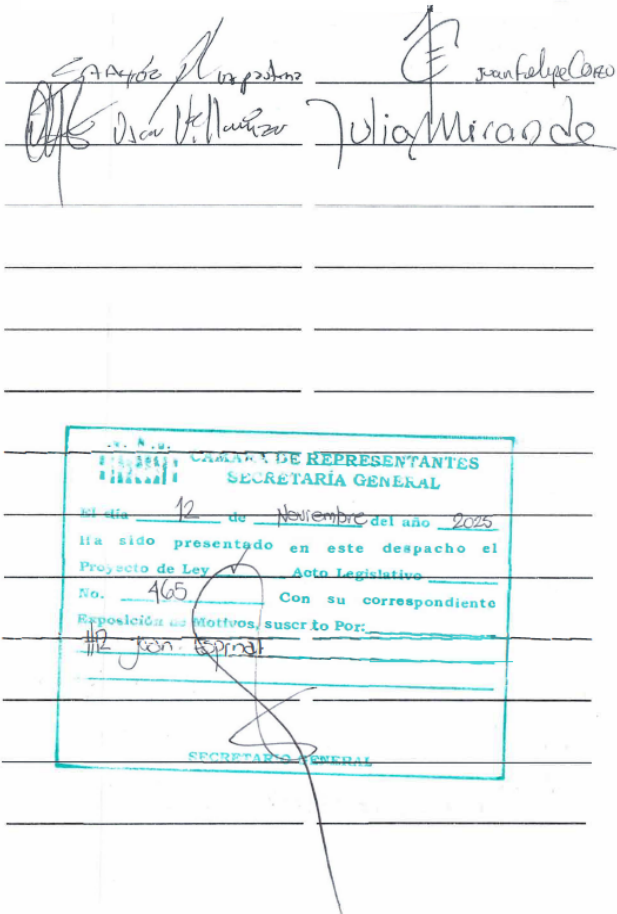 Juan Felipe Corzo
Oscar Villamizar Julia Miranda
CAMARA DE REPRESENTANTES
SECRETARÍA GENERAL
El día 12 de Noviembre del año 2025
Ha sido presentado en este despacho el
Proyecto de Ley ✓ Acto Legislativo
No. 465 Con su correspondiente
Exposición de Motivos, suscrito Por:
HR Juan Espinal
SECRETARIO GENERAL